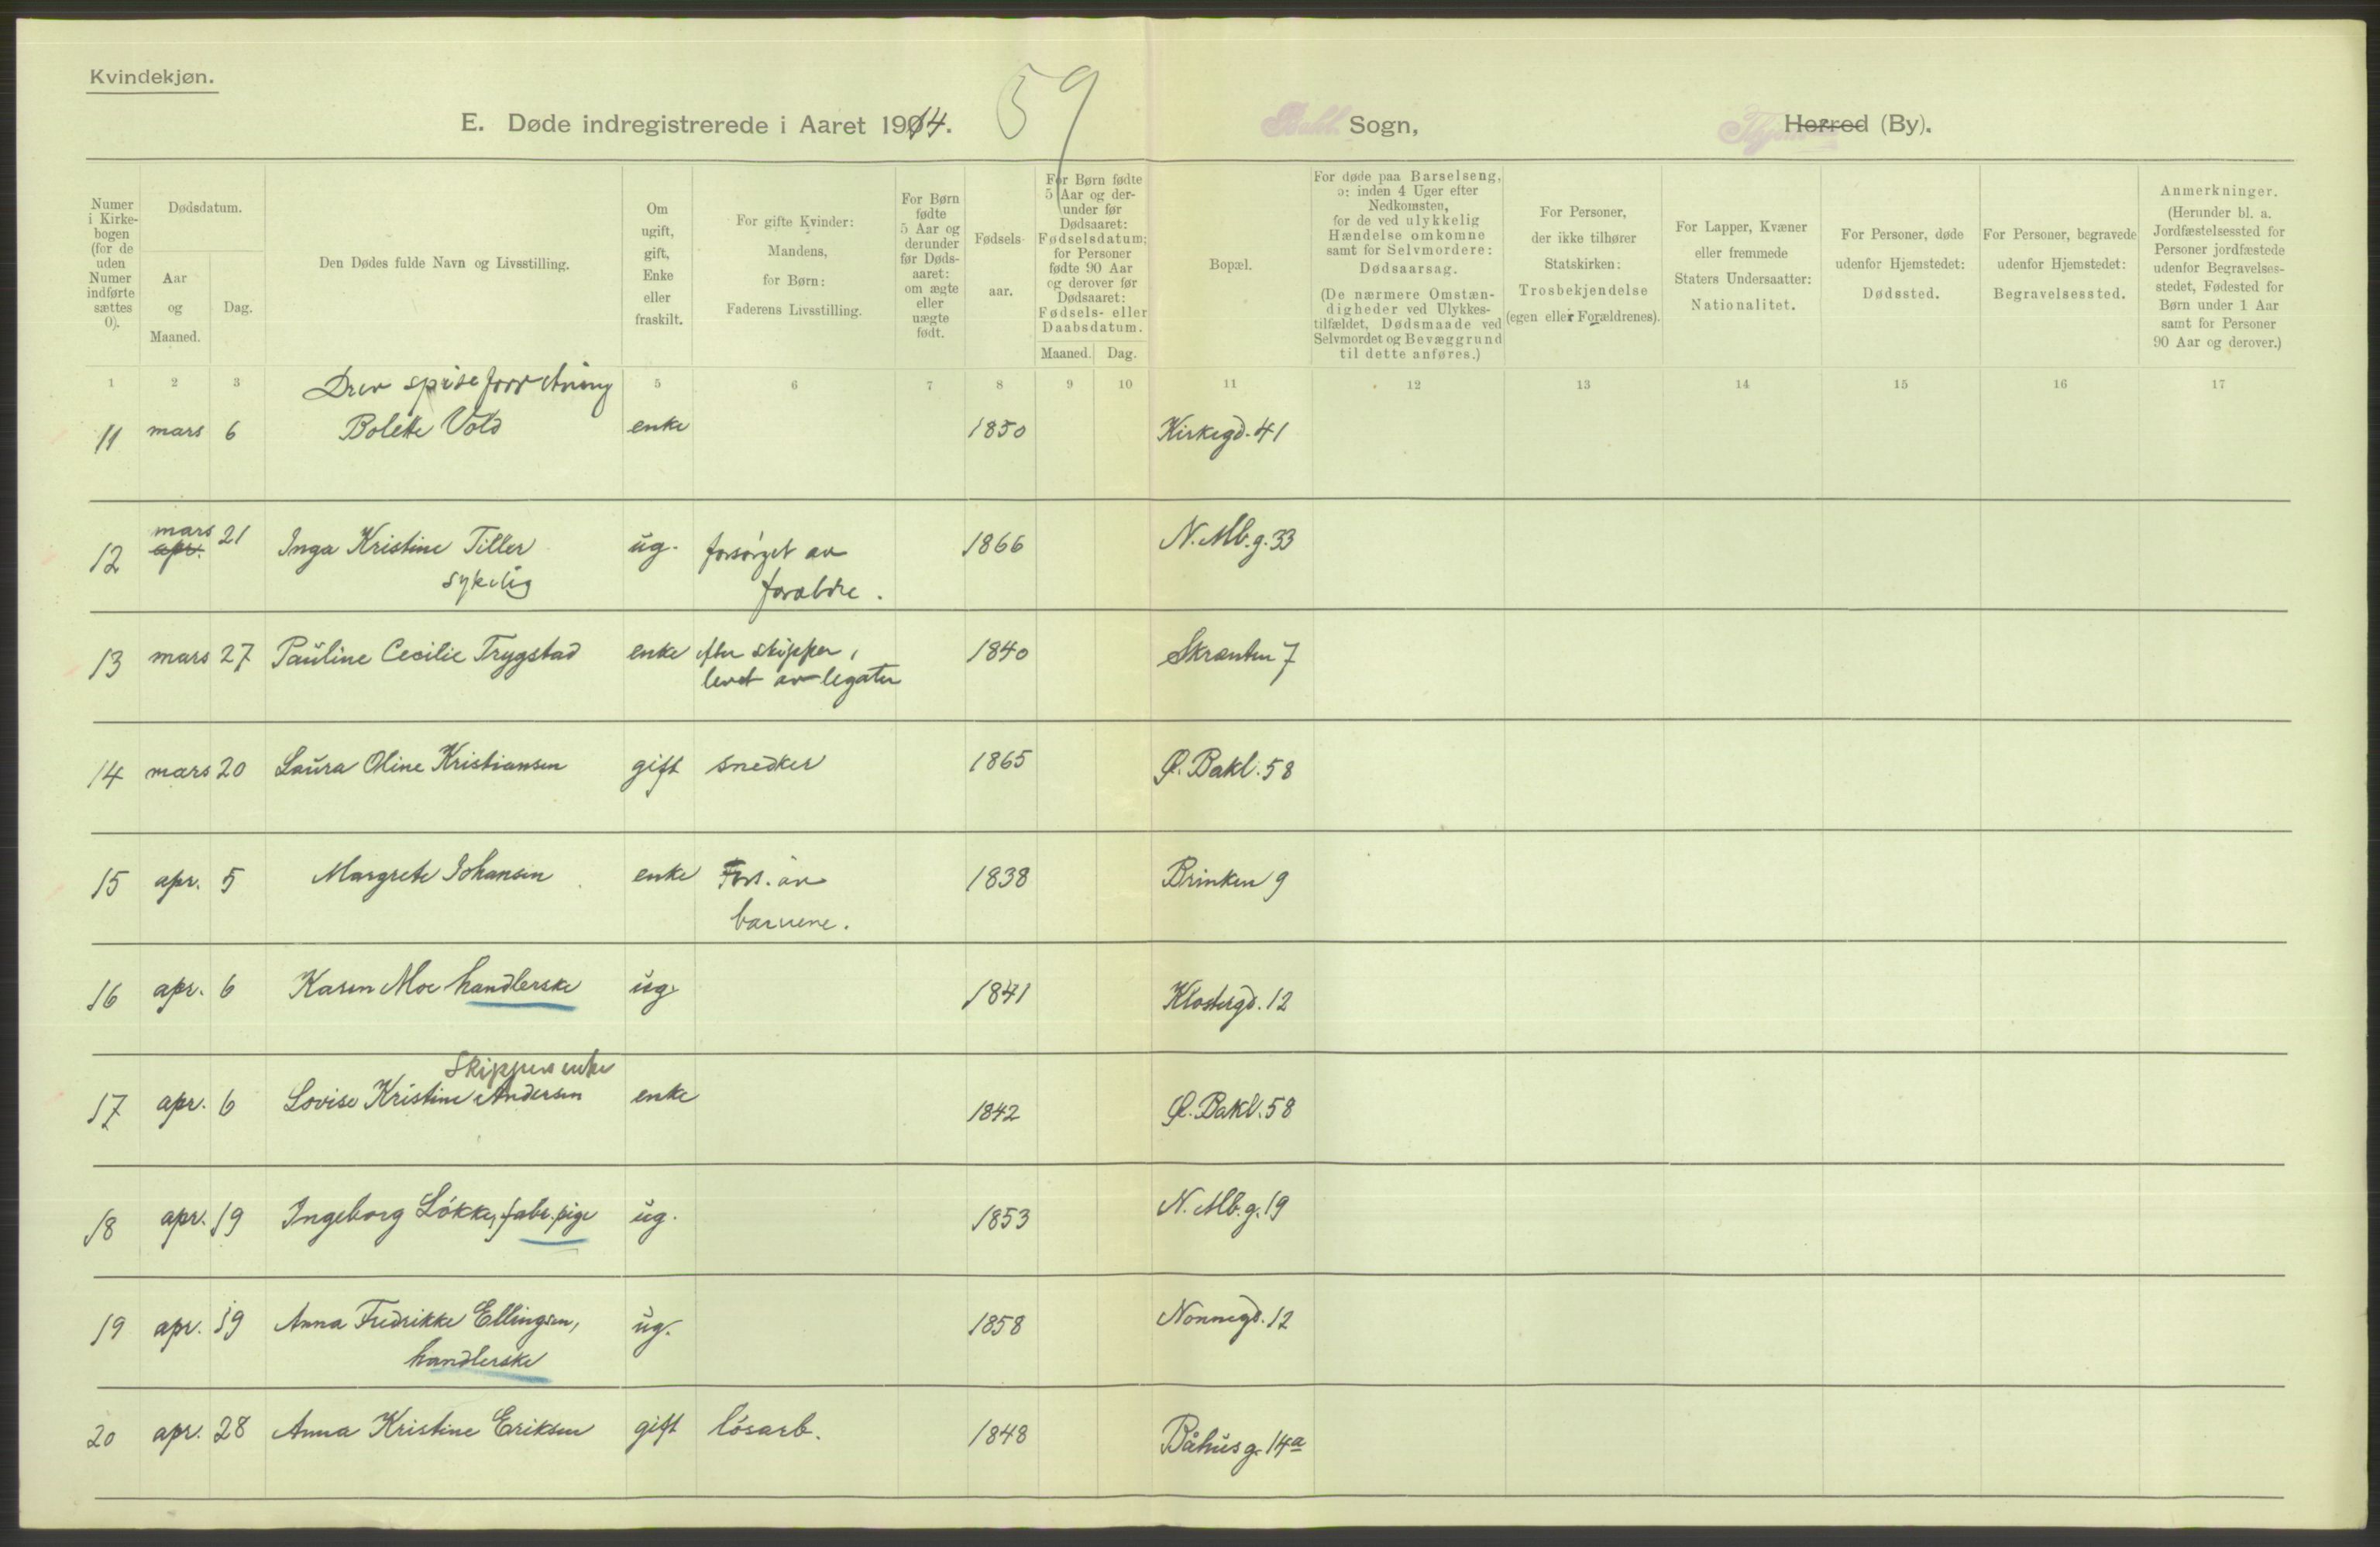 Kvindekjøn.
E. Døde indregistrerede i Aaret 1914.
59
Bakl. Sogn,
Herred (By).
Numer
i Kirke-
bogen
(for de
uden
Numer
indførte
sættes
0).
Dødsdatum.
Aar
og
Maaned.
Dag.
Den Dødes fulde Navn og Livsstilling.
Om
ugift,
gift,
Enke
eller
fraskilt.
For gifte Kvinder:
Mandens,
for Børn:
Faderens Livsstilling.
For Børn
fødte
5 Aar og
derunder
før Døds-
aaret:
om ægte
eller
uægte
født.
Fødsels-
aar.
For Børn fødte
5 Aar og der-
under før
Dødsaaret:
Fødselsdatum;
for Personer
fødte 90 Aar
og derover før
Dødsaaret:
Fødsels- eller
Daabsdatum.
Maaned. Dag.
Bopæl.
For døde paa Barselseng,
ɔ: inden 4 Uger efter
Nedkomsten,
for de ved ulykkelig
Hændelse omkomne
samt for Selvmordere:
Dødsaarsag.
(De nærmere Omstæn-
digheder ved Ulykkes-
tilfældet, Dødsmaade ved
Selvmordet og Bevæggrund
til dette anføres.)
For Personer,
der ikke tilhører
Statskirken:
Trosbekjendelse
(egen eller Forældrenes).
For Lapper, Kvæner
eller fremmede
Staters Undersaatter:
Nationalitet.
For Personer, døde
udenfor Hjemstedet:
Dødssted.
For Personer, begravede
udenfor Hjemstedet:
Begravelsessted.
Anmerkninger.
(Herunder bl. a.
Jordfæstelsessted for
Personer jordfæstede
udenfor Begravelses-
stedet, Fødested for
Børn under 1 Aar
samt for Personer
90 Aar og derover.)
1 2 3 5 6 7 8 9 10 11 12 13 14 15 16 17
Drev spiseforretning
11 mars 6 Bolette Vold enke 1850 Kirkegd. 41
mars
12 apr. 21 Inga Kristine Tiller ug. forsørget av 1866 N. Mb.g. 33
sykelig forældre.
13 mars 27 Pauline Cecilie Trygstad enke efter skipper, 1840 Skrænten 7
levet av legater
14 mars 20 Laura Oline Kristiansen gift snedker 1865 Ø. Bakl. 58
15 apr. 5 Margrete Johansen enke Fors. av 1838 Brinken 9
barnene.
16 apr. 6 Karen Moe handlerske ug. 1841 Klostergd. 12
Skippers enke
17 apr. 6 Lovise Kristine Andersen enke 1842 Ø. Bakl. 58
18 apr. 19 Ingeborg Løkke, fabr. pige ug. 1853 N. Mb.g. 19
19 apr. 19 Anna Fredrikke Ellingsen, ug. 1858 Nonnegd. 12
handlerske
20 apr. 28 Anna Kristine Eriksen gift løsarb. 1848 Båhusg. 14a